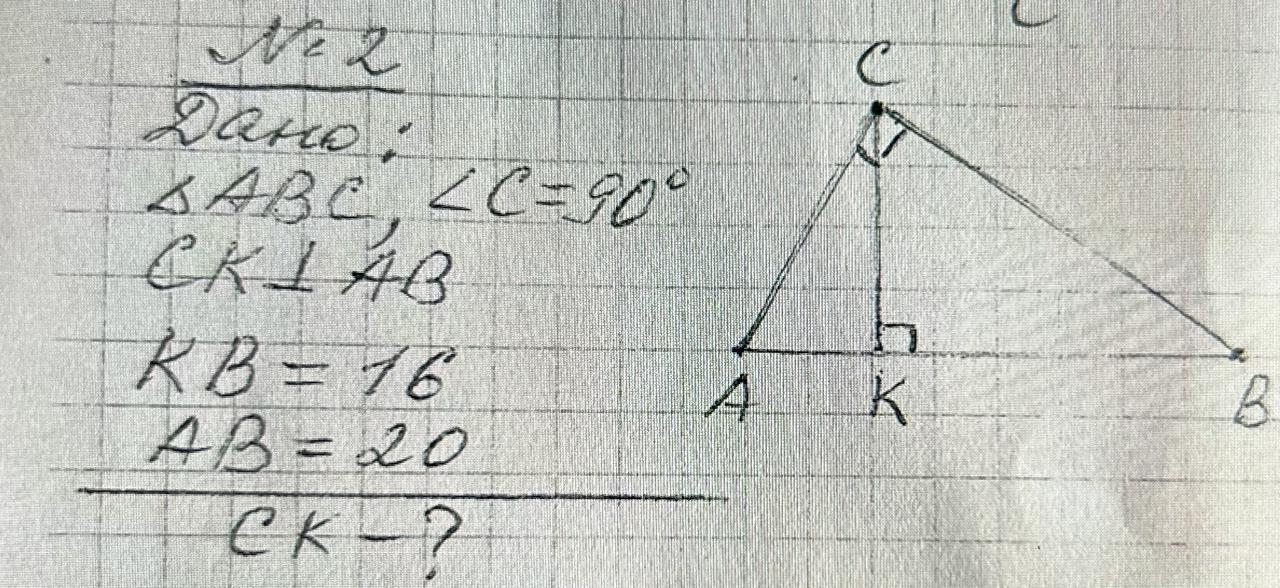 № 2
Дано:
△ABC, ∠C=90°
CK⊥AB
KB = 16
AB = 20
CK – ?
C
A
K
B